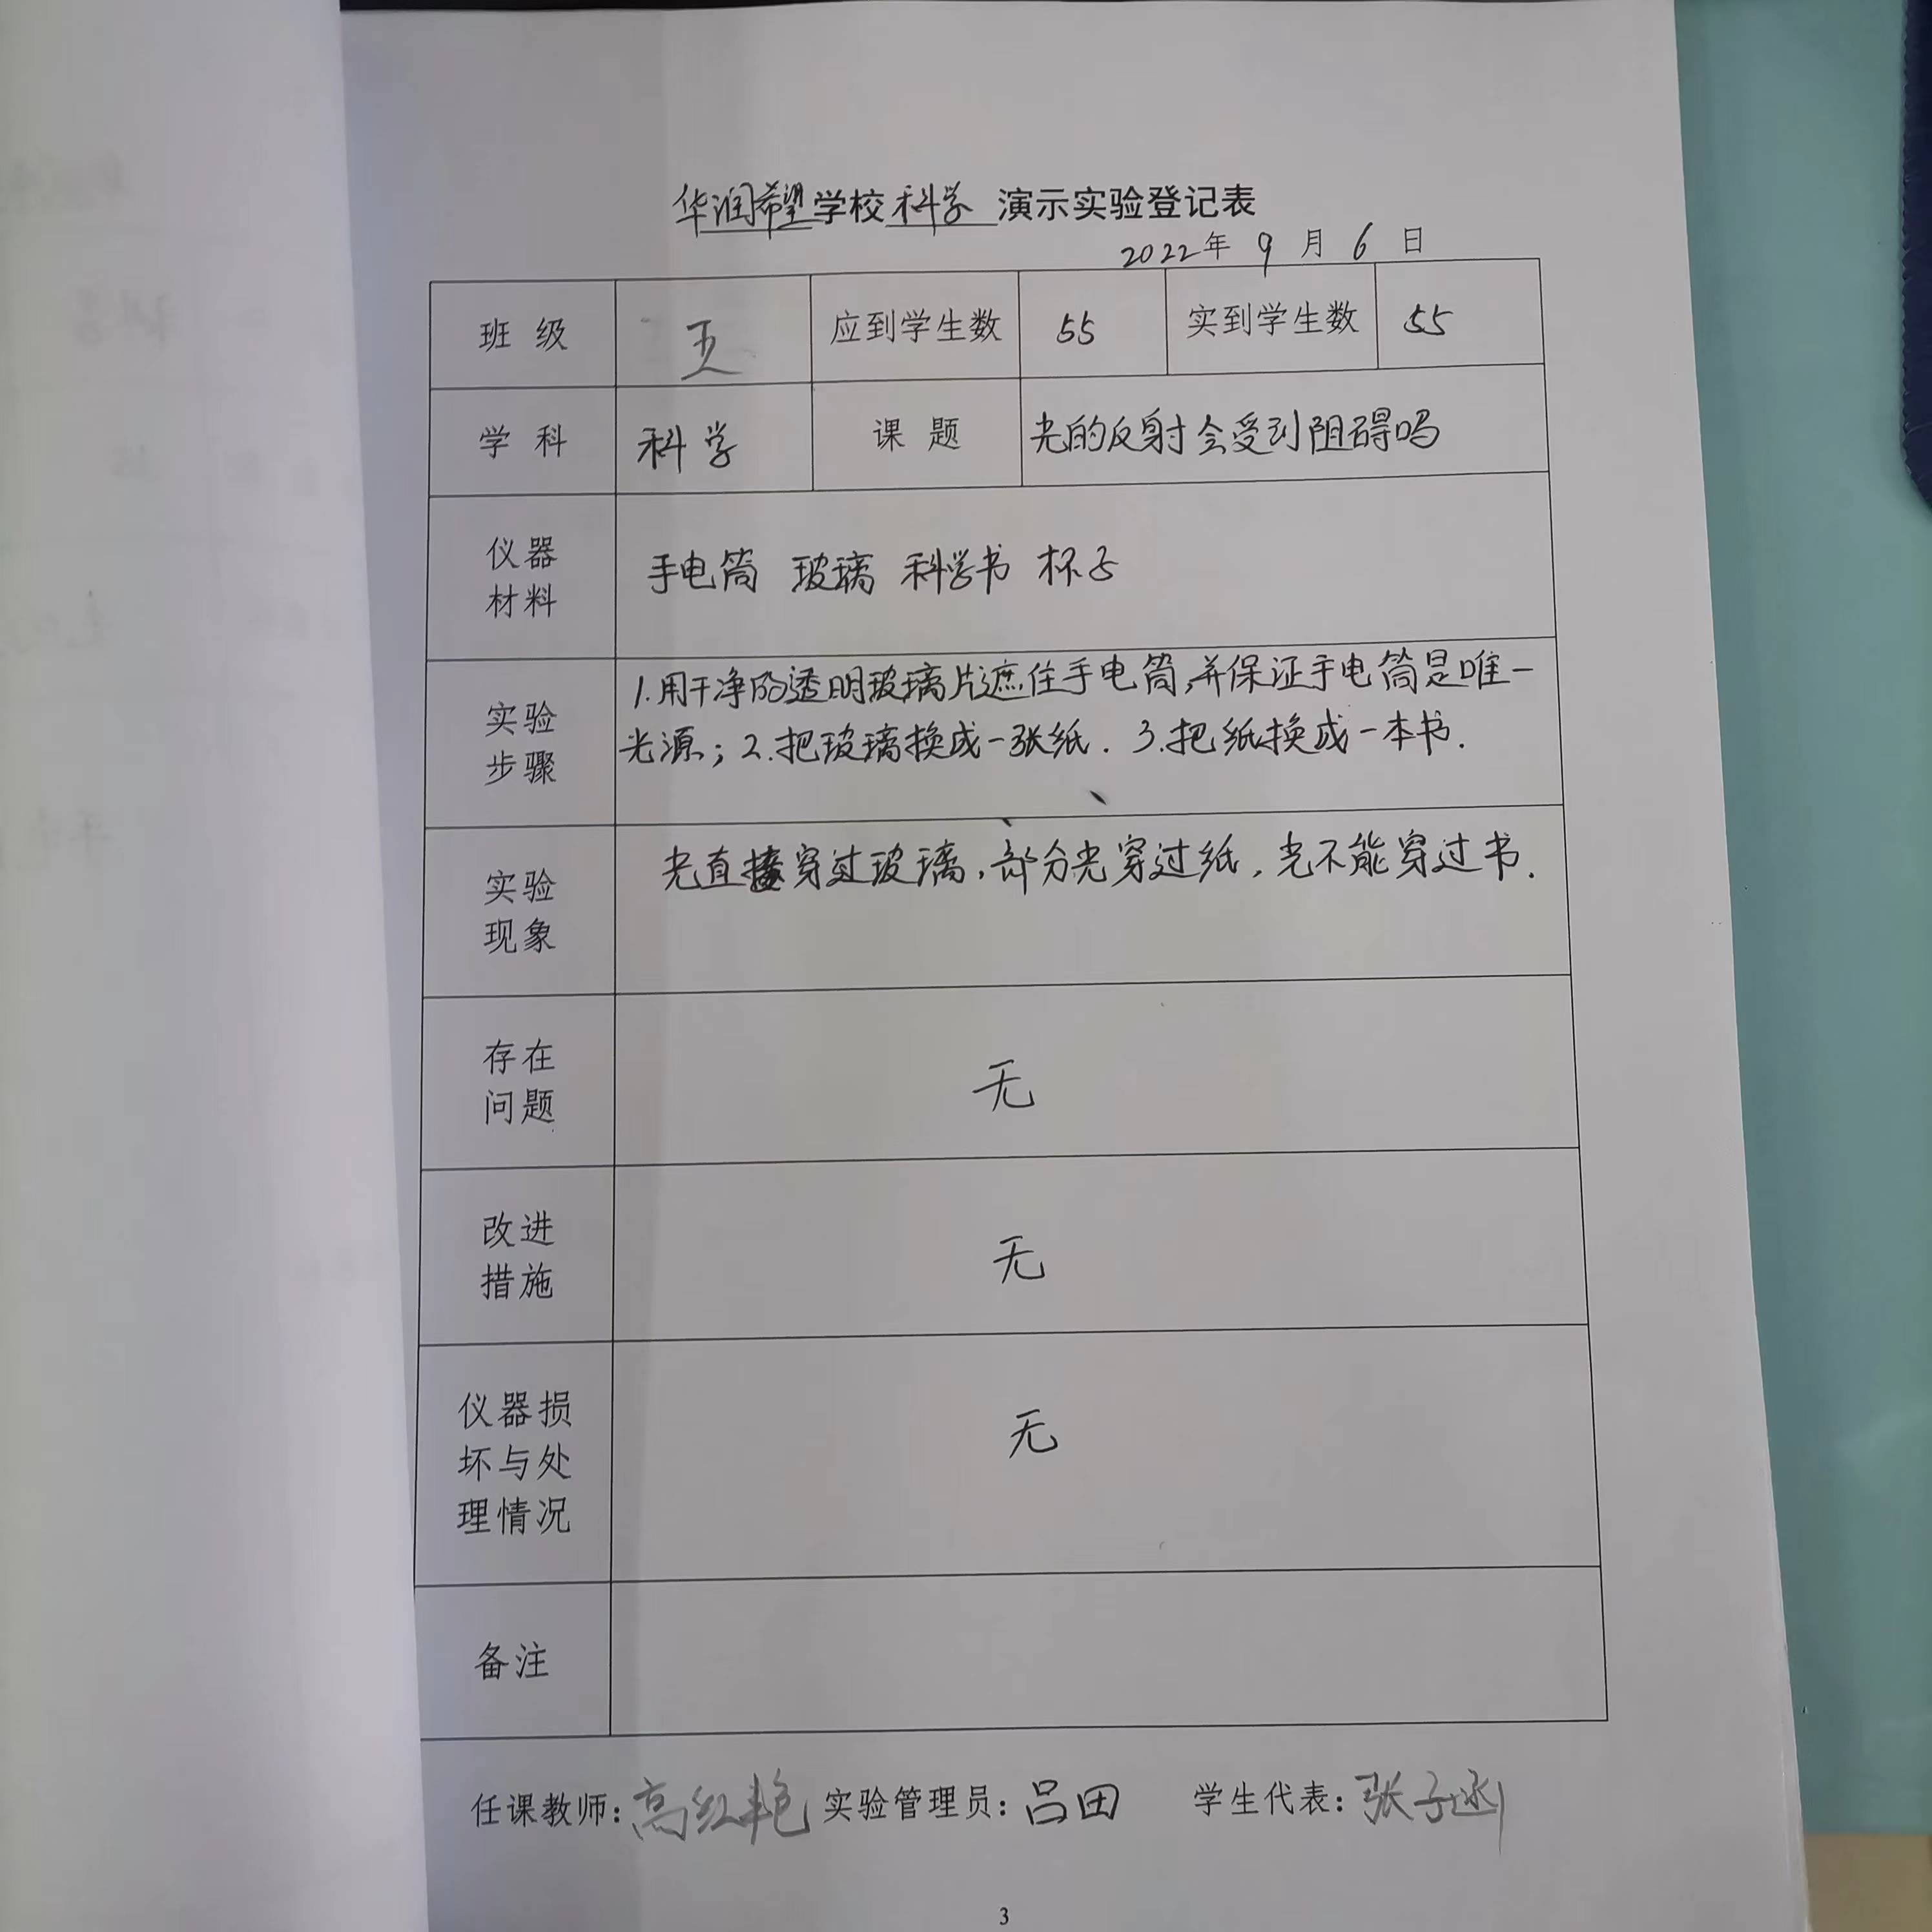 华润希望学校科学演示实验登记表
2022年 9 月 6 日
班级 五 应到学生数 55 实到学生数 55
学科 科学 课题 光的反射会受到阻碍吗
仪器
材料
手电筒 玻璃 科学书 杯子
实验
步骤
1.用干净的透明玻璃片遮住手电筒,并保证手电筒是唯一
光源;2.把玻璃换成一张纸.3.把纸换成一本书.
实验
现象
光直接穿过玻璃,部分光穿过纸,光不能穿过书.
存在
问题
无
改进
措施
无
仪器损
坏与处
理情况
无
备注
任课教师:高红艳 实验管理员:吕田 学生代表:张子涵
3